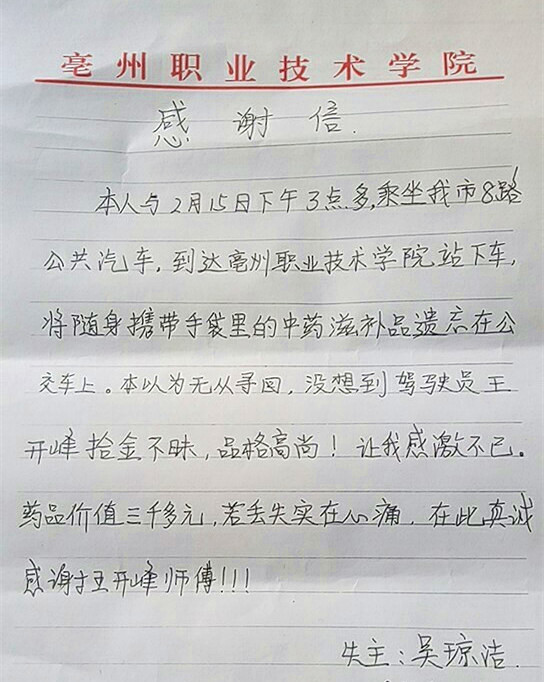 亳州职业技术学院
感谢信.
本人与2月15日下午3点多,乘坐我市8路
公共汽车,到达亳州职业技术学院站下车,
将随身携带手袋里的中药滋补品遗忘在公
交车上。本以为无从寻回,没想到驾驶员王
开峰拾金不昧,品格高尚!让我感激不已。
药品价值三千多元,若丢失实在心痛,在此真诚
感谢王开峰师傅!!!
失主:吴琼洁.